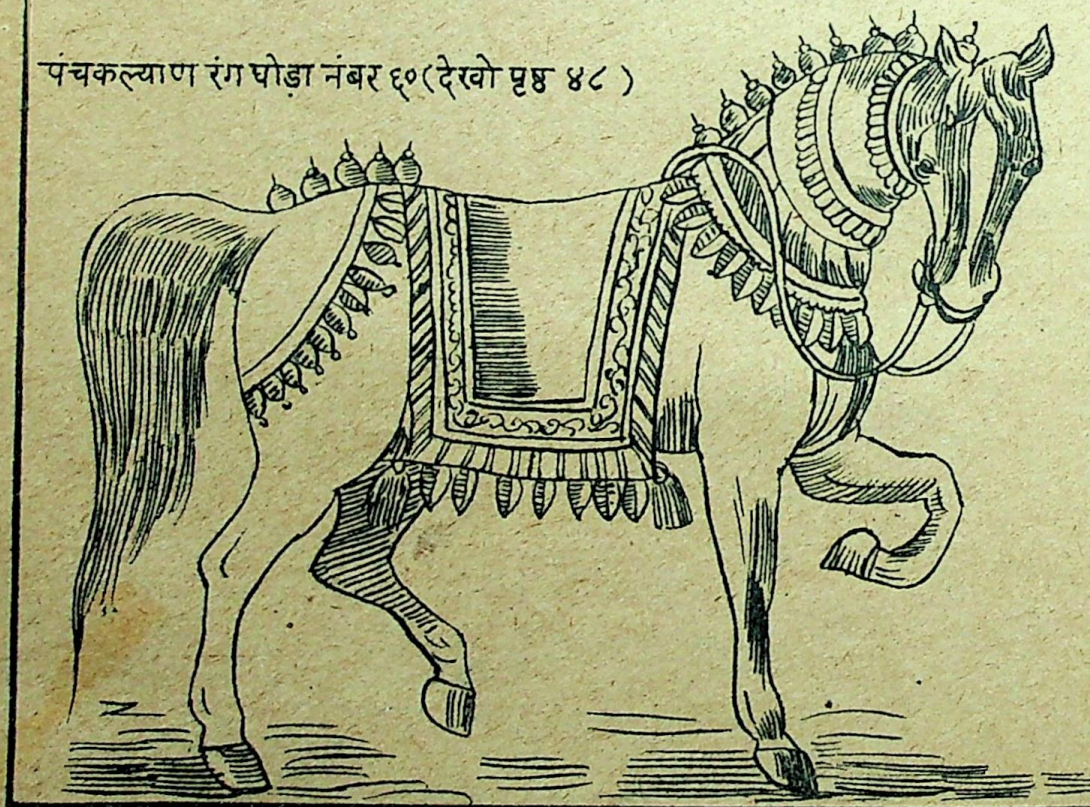 पंचकल्याण रंग घोड़ा नंबर ६० (देखो पृष्ठ ४८)